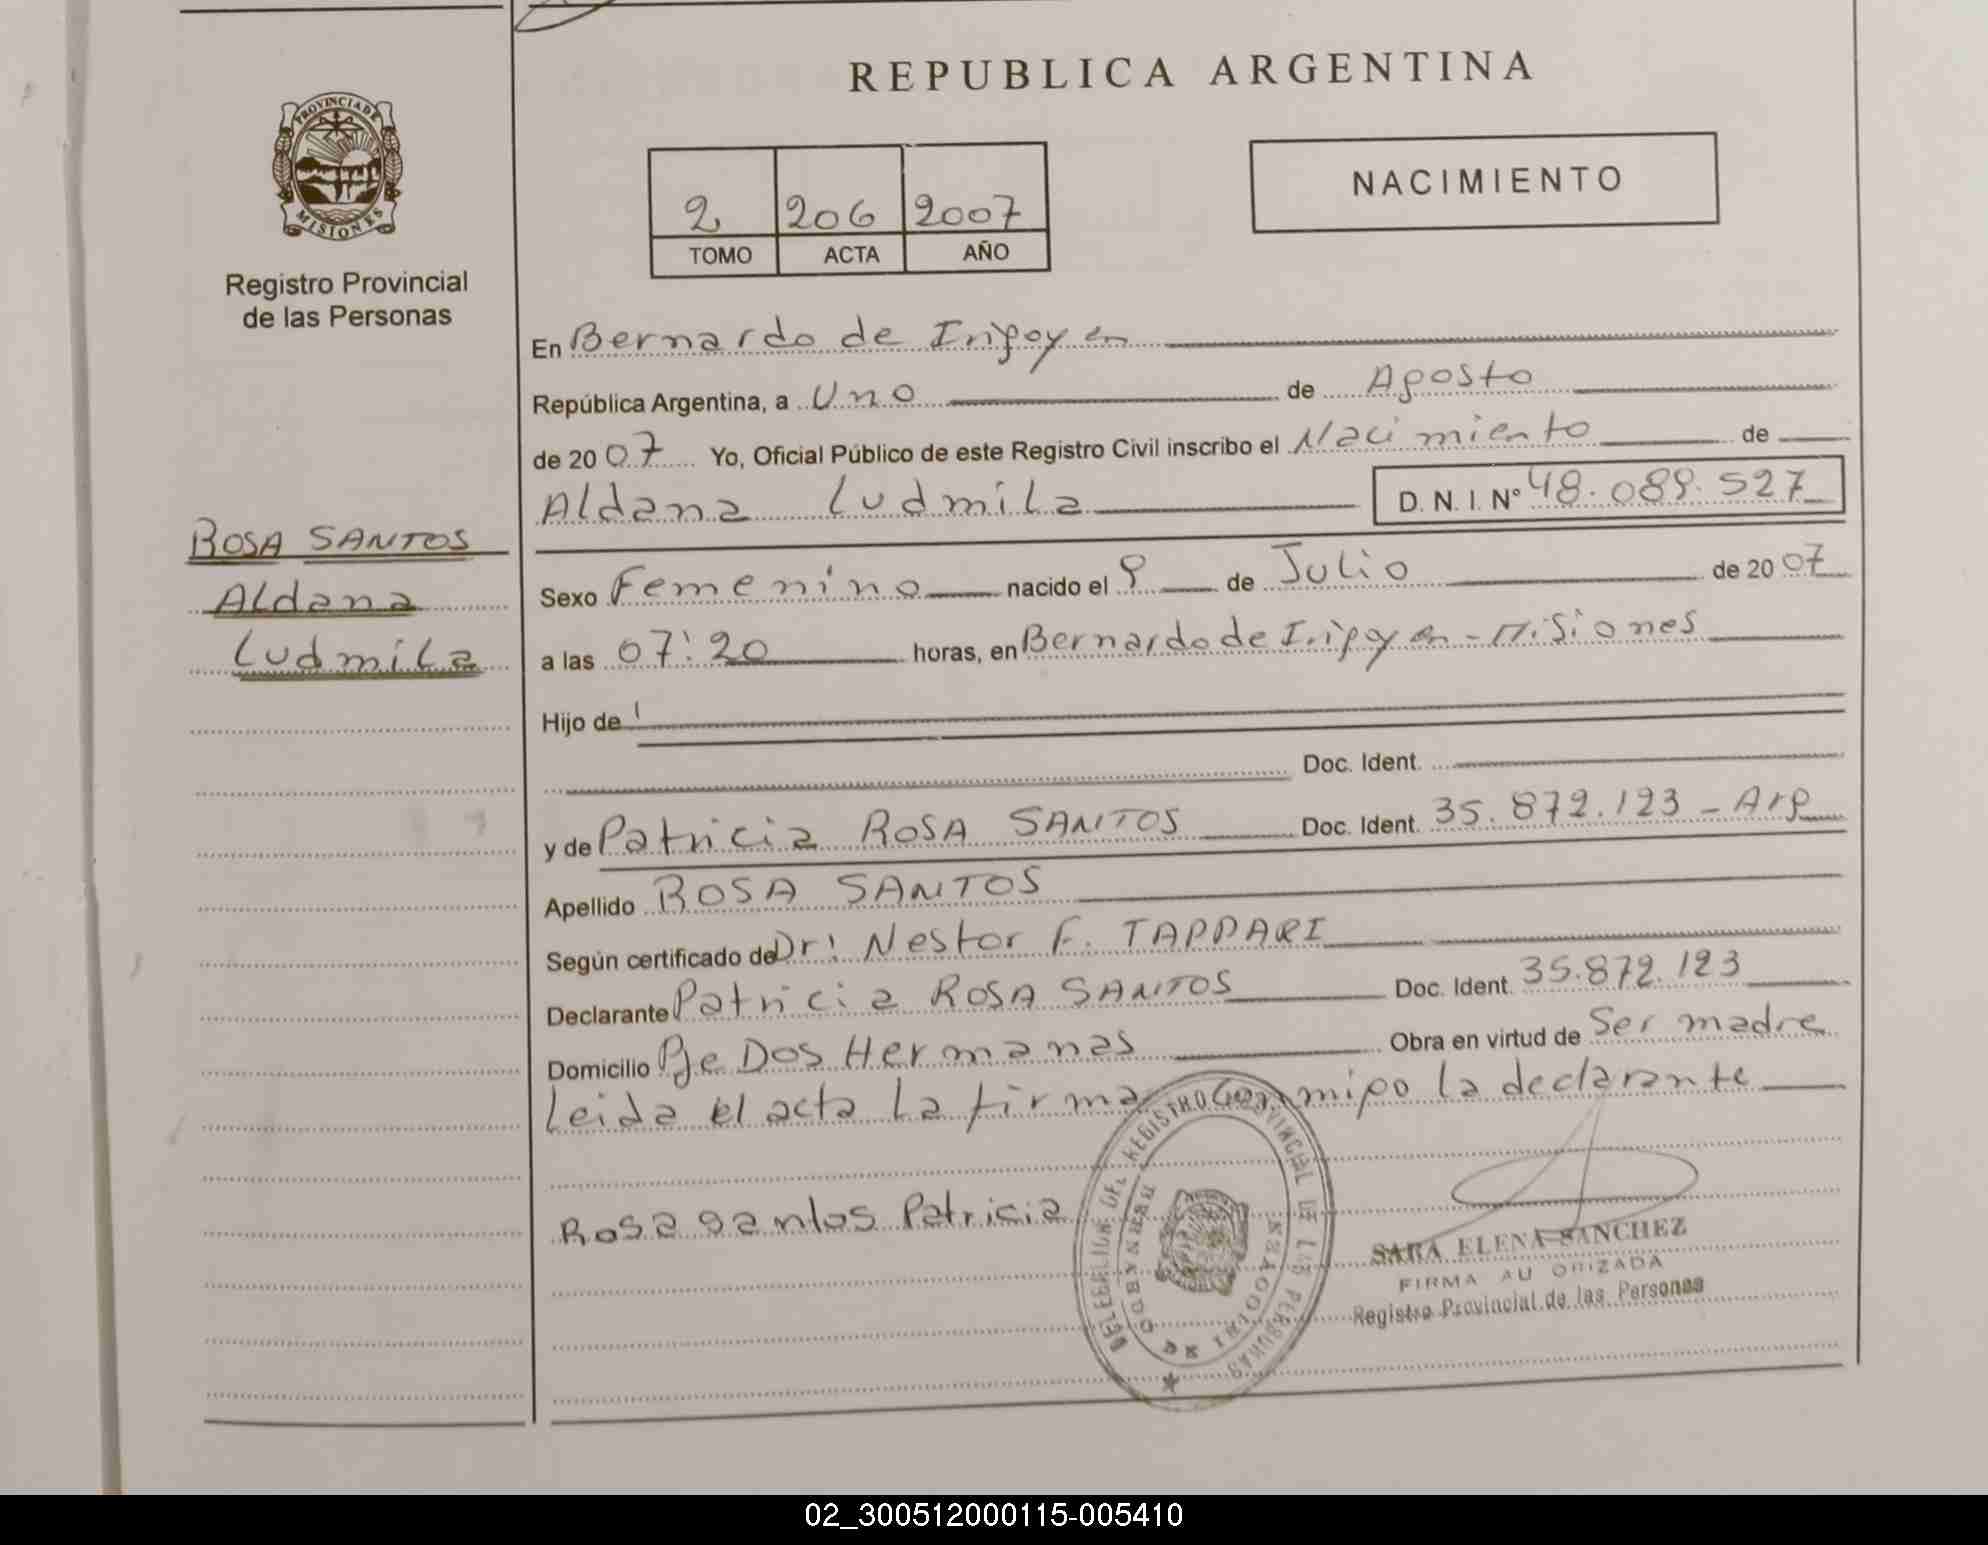 REPUBLICA ARGENTINA
PROVINCIA DE
MISIONES
Registro Provincial
de las Personas
2 206 2007
TOMO ACTA AÑO
NACIMIENTO
En Bernardo de Irigoyen
República Argentina, a Uno de Agosto
de 2007 Yo, Oficial Público de este Registro Civil inscribo el Nacimiento de
Aldana Ludmila D. N. I. Nº 48.089.527
ROSA SANTOS
Aldana
Ludmila
Sexo Femenino nacido el 9 de Julio de 2007
a las 07:20 horas, en Bernardo de Irigoyen - Misiones
Hijo de
Doc. Ident.
y de Patricia ROSA SANTOS Doc. Ident. 35.872.123 - Arg
Apellido ROSA SANTOS
Según certificado de Dr: Nestor F. TAPPARI
Declarante Patricia ROSA SANTOS Doc. Ident. 35.872.123
Domicilio Pje Dos Hermanas Obra en virtud de Ser madre
Leida el acta la firma conmigo la declarante
Rosa santos Patricia
DELEGACION DEL REGISTRO PROVINCIAL DE LAS PERSONAS
BERNARDO DE IRIGOYEN
SARA ELENA SANCHEZ
FIRMA AU ORIZADA
Registro Provincial de las Personas
02_300512000115-005410